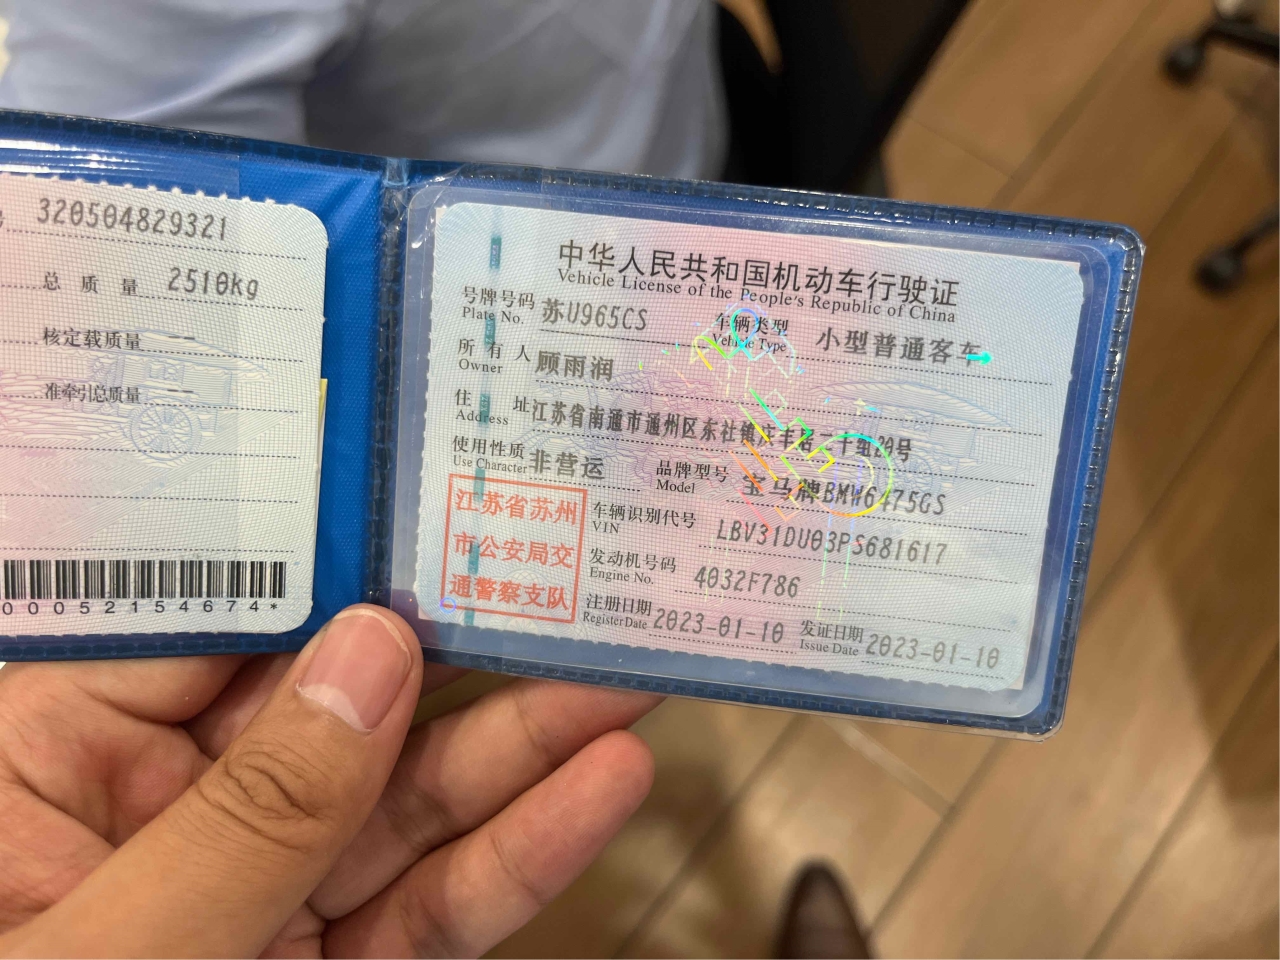 320504829321
总 质 量 2510kg
核定载质量 --
准牵引总质量 --
000052154674*
中华人民共和国机动车行驶证
Vehicle License of the People's Republic of China
号牌号码 苏U965CS 车辆类型 小型普通客车
Plate No. Vehicle Type
所 有 人 顾雨润
Owner
住 址 江苏省南通市通州区东社镇 十组20号
Address
使用性质 非营运 品牌型号 宝马牌BMW6475GS
Use Character Model
江苏省苏州
市公安局交
通警察支队
车辆识别代号 LBV31DU03PS681617
VIN
发动机号码 4032F786
Engine No.
注册日期 2023-01-10 发证日期 2023-01-10
Register Date Issue Date